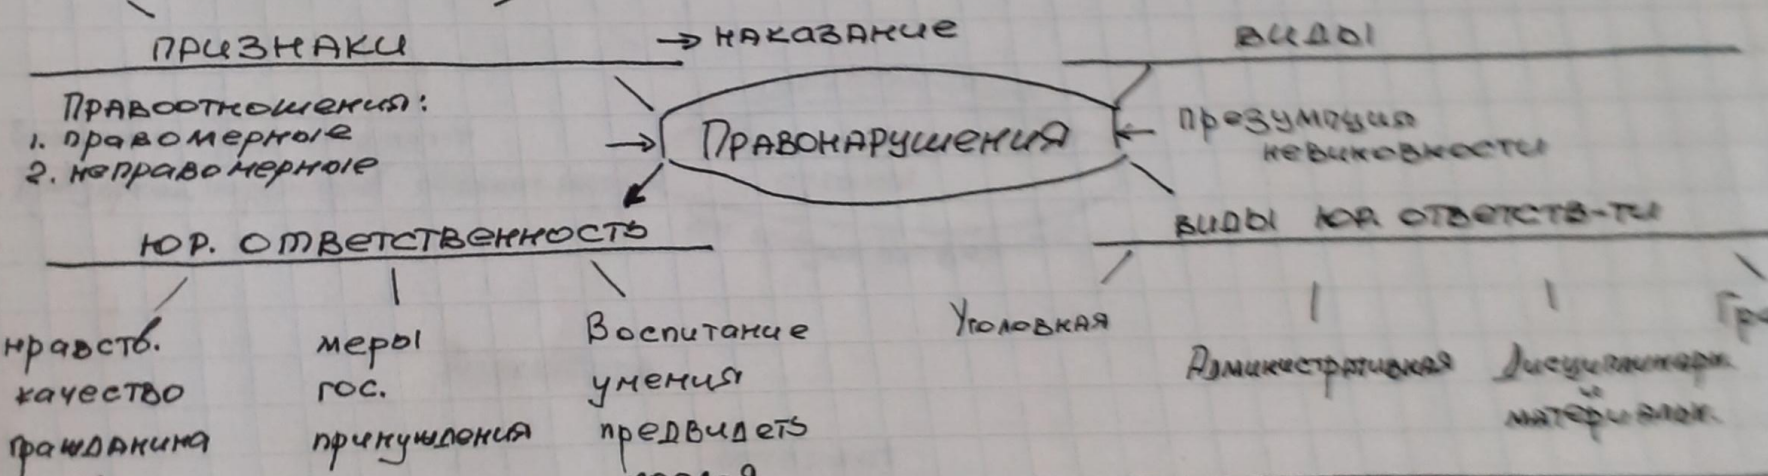 ПРИЗНАКИ
→ НАКАЗАНИЕ
ВИДЫ
ПРАВООТНОШЕНИЯ:
1. правомерные
2. неправомерные
ПРАВОНАРУШЕНИЯ
презумпция
невиновности
ЮР. ОТВЕТСТВЕННОСТЬ
ВИДЫ ЮР. ОТВЕТСТВ-ТИ
нравств.
качество
гражданина
меры
гос.
принуждения
Воспитание
умения
предвидеть
Уголовная
Административная
Дисциплинарн.
и
материальн.